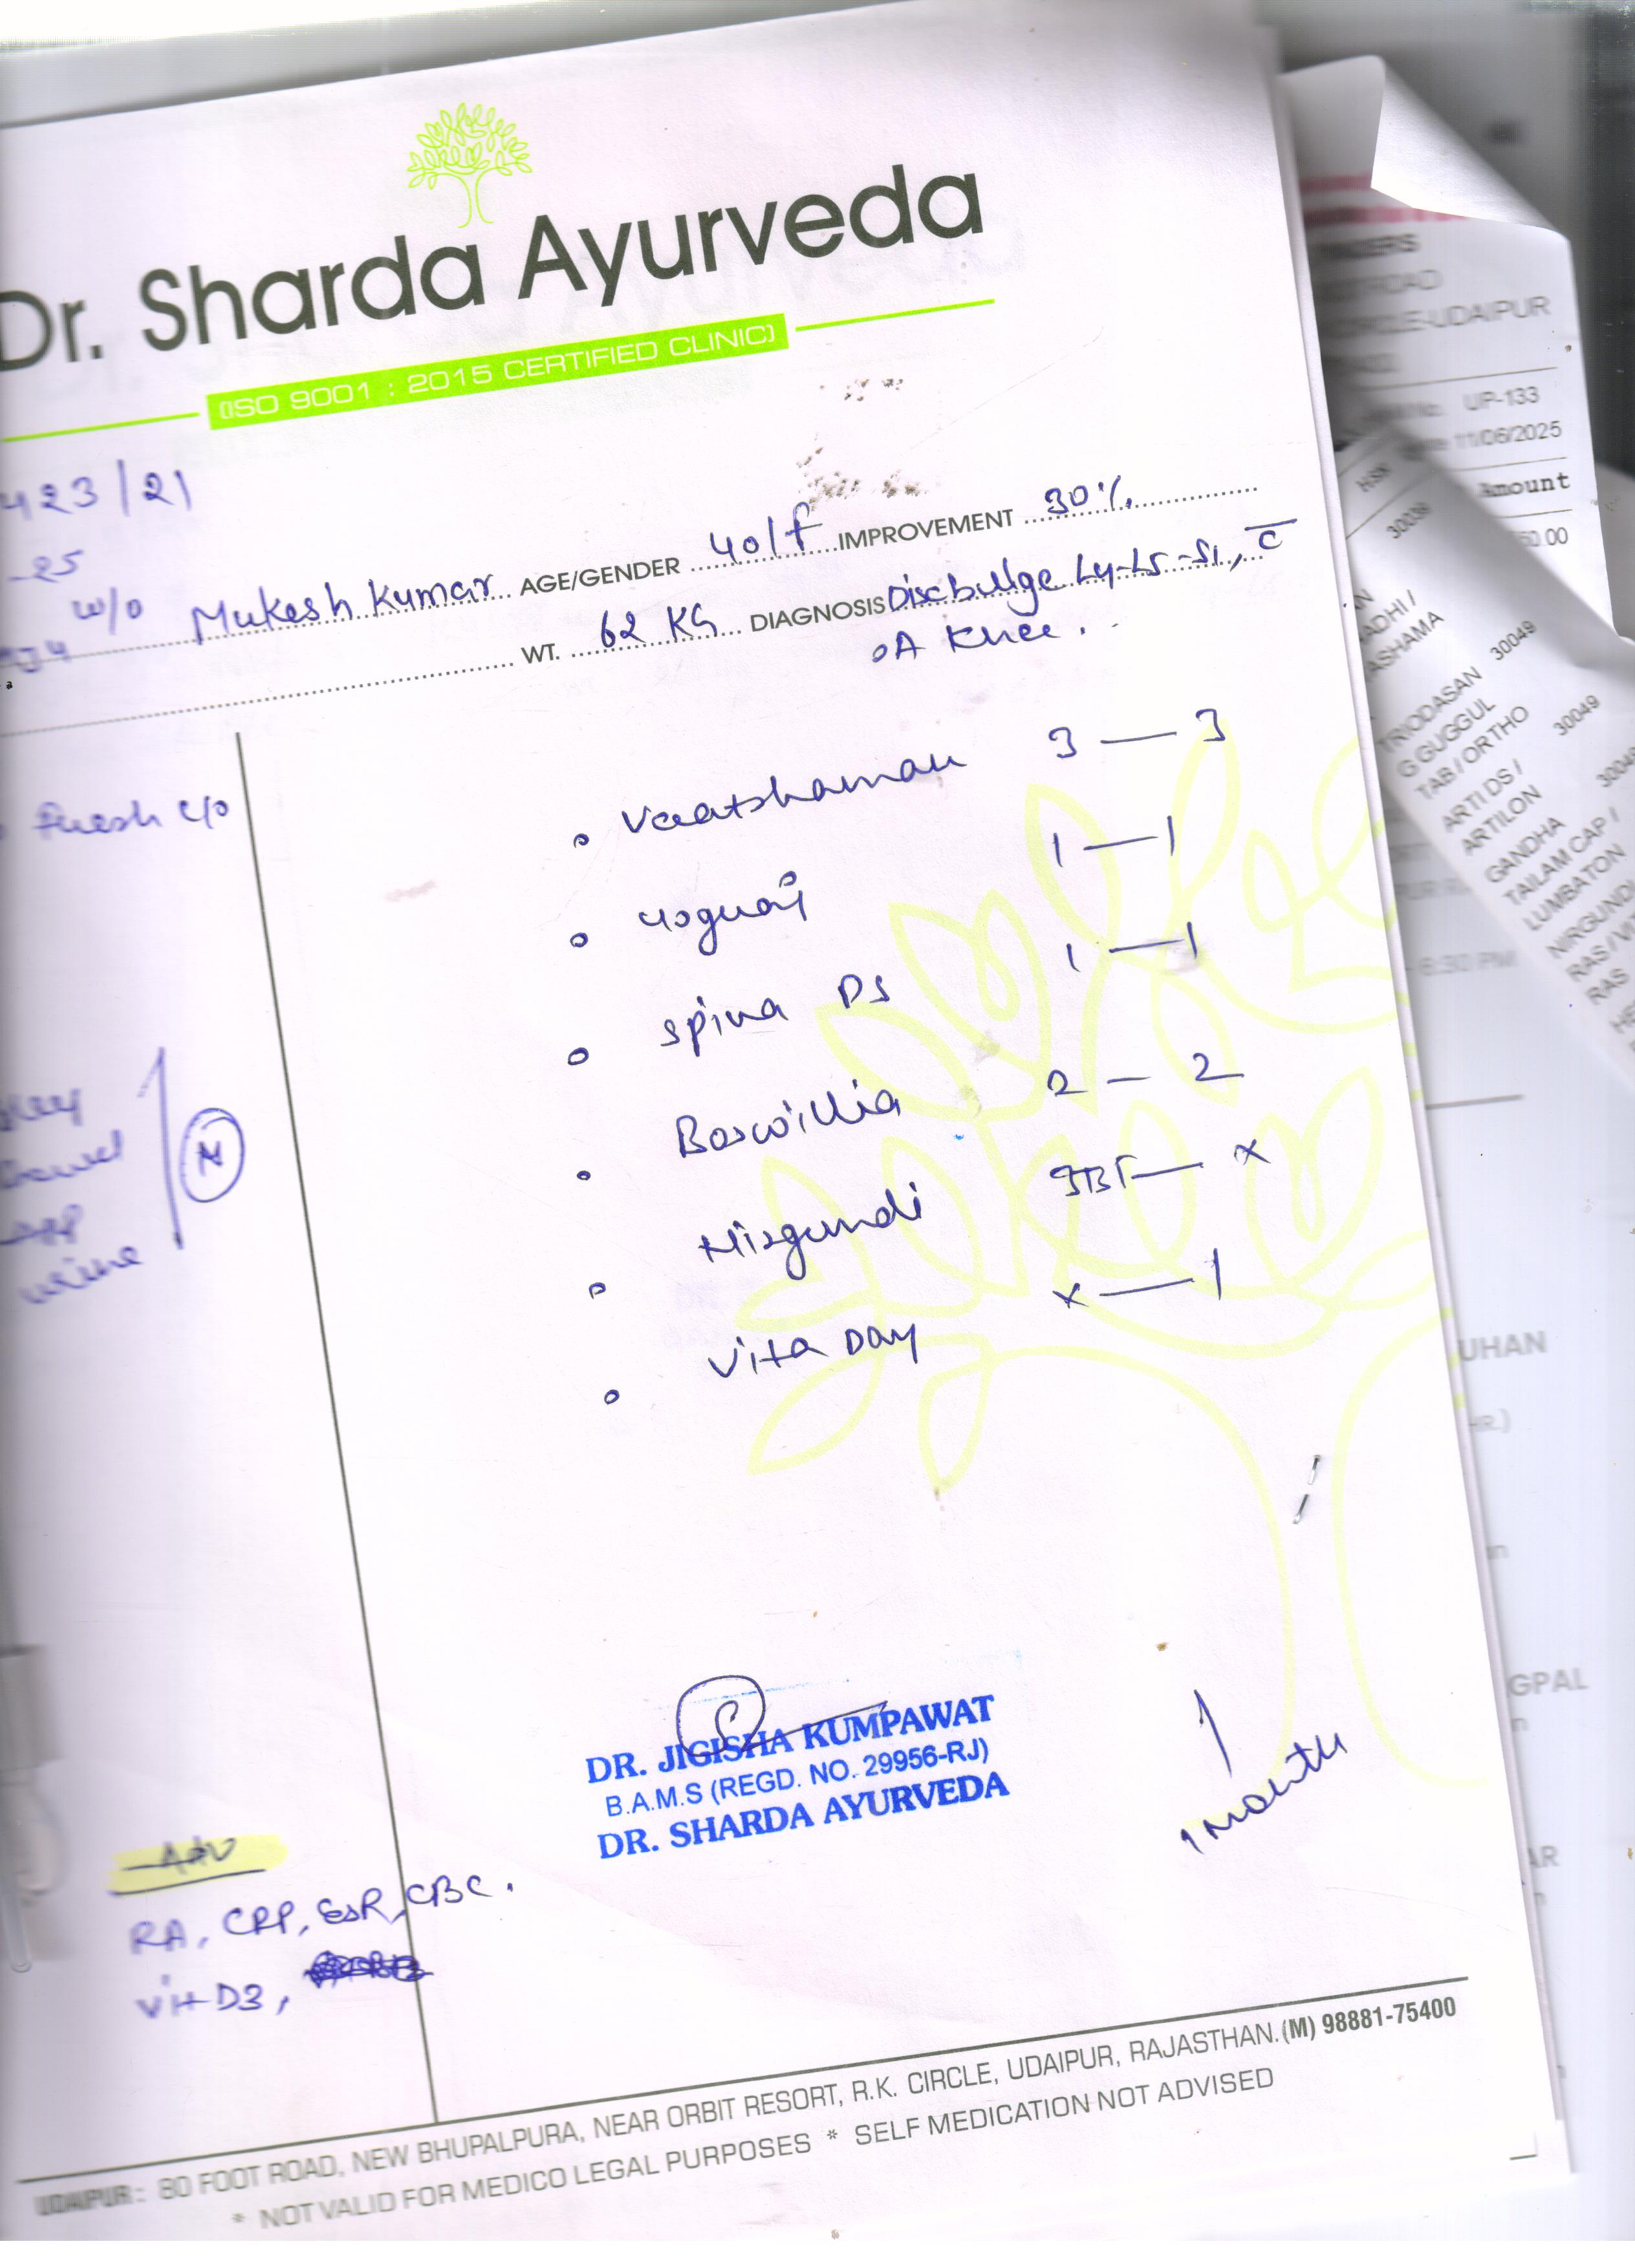 Dr. Sharda Ayurveda
(ISO 9001 : 2015 CERTIFIED CLINIC)
423/21
-25
w/o Mukesh Kumar AGE/GENDER 40/f IMPROVEMENT 30%
WT. 62 KG DIAGNOSIS Disc bulge L4-L5-S1, c̅
OA Knee.
fresh c/o
Vaatshaman 3 — 3
1 — 1
Spina DS 1 — 1
Boswillia 2 — 2
Nirgundi — x
Vita Day x — 1
N
urine
DR. JIGISHA KUMPAWAT
B.A.M.S (REGD. NO. 29956-RJ)
DR. SHARDA AYURVEDA
1 month
Adv
RA, CRP, ESR, CBC.
Vit D3,
UDAIPUR: 80 FOOT ROAD, NEW BHUPALPURA, NEAR ORBIT RESORT, R.K. CIRCLE, UDAIPUR, RAJASTHAN. (M) 98881-75400
* NOT VALID FOR MEDICO LEGAL PURPOSES * SELF MEDICATION NOT ADVISED
ROAD
CIRCLE-UDAIPUR
UP-133
11/06/2025
Amount
HSN
30036
ADHI /
ASHAMA
TRIODASAN 30049
G GUGGUL
TAB / ORTHO
ARTI DS / 30049
ARTILON
GANDHA
TAILAM CAP /
LUMBATON
NIRGUNDI
RAS / VIT
RAS
6:30 PM
UHAN
HR.)
GPAL
AR